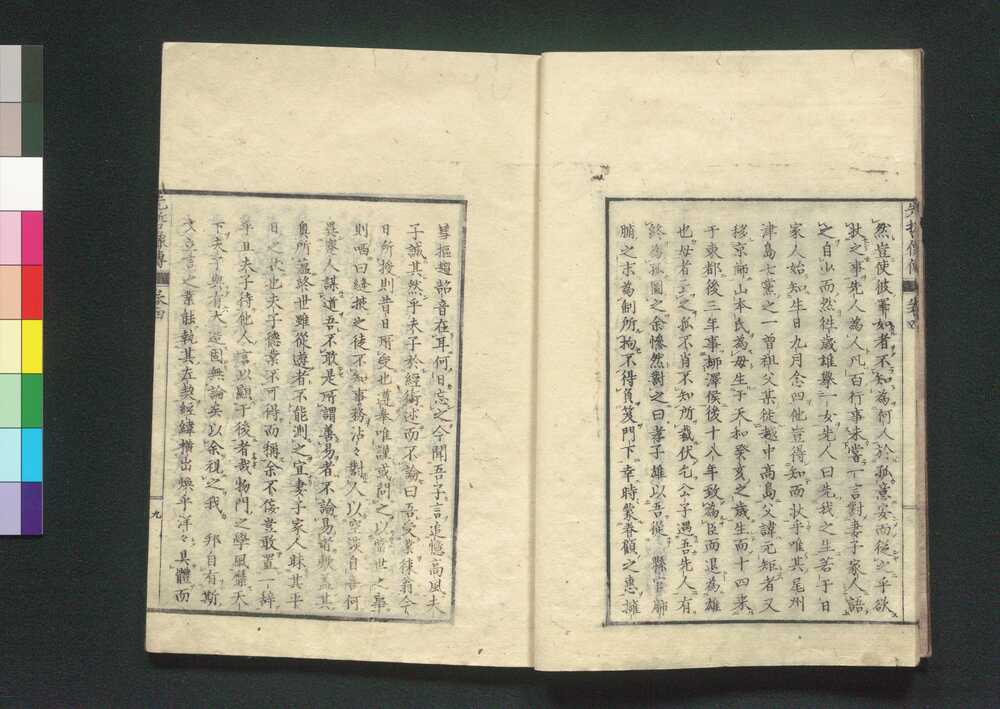 然豈使彼輩如者不知為何人於孤意安而従之乎欲
狀之事先人為人凡百行事未嘗一言對妻子家人語
之自少而然往歲雄擧一女先人曰先我之生若干日
家人始知生日九月念四他豈得知而狀乎唯其尾州
津島七黨之一曾祖父某徙越中高島父諱元矩者又
移京師山本氏為母生于天和癸亥之歲生而十四来
于東都後三年事師澤侯後十八年致為臣而退為雄
也母者工之孤不肖不知所裁伏乞公子遇吾先人有
終為孤圖之余慘然對之曰孝子雄以吾從縣官廓
脯之末為制所拘不得負笈門下幸時蒙眷顧之惠擁
彗摳趨韶音在耳何日忘之今聞吾子言追憶高風夫
子誠其然乎夫子於經術述而不論曰吾受業徠翁今
日所授則昔日所受也遵奉唯謹或問之以當世之事
則哂曰縫掖之徒不知事務沾々對人以空談自喜何
異寮人謀道吾不敢是所謂善易者不論易者歟蓋其
奥所蘊終世雖從遊者不能測之宜妻子家人昧其平
日之狀也夫子德業不可得而稱余不佞豈敢置一辞
乎且夫子待他人言以顯于後者哉物門之學風靡天
下夫子與有大造固無論矣以余視之我邦自有斯
文立言之業能執其左契經緯橫出煥乎洋々具體而
先哲像傳 卷四
九